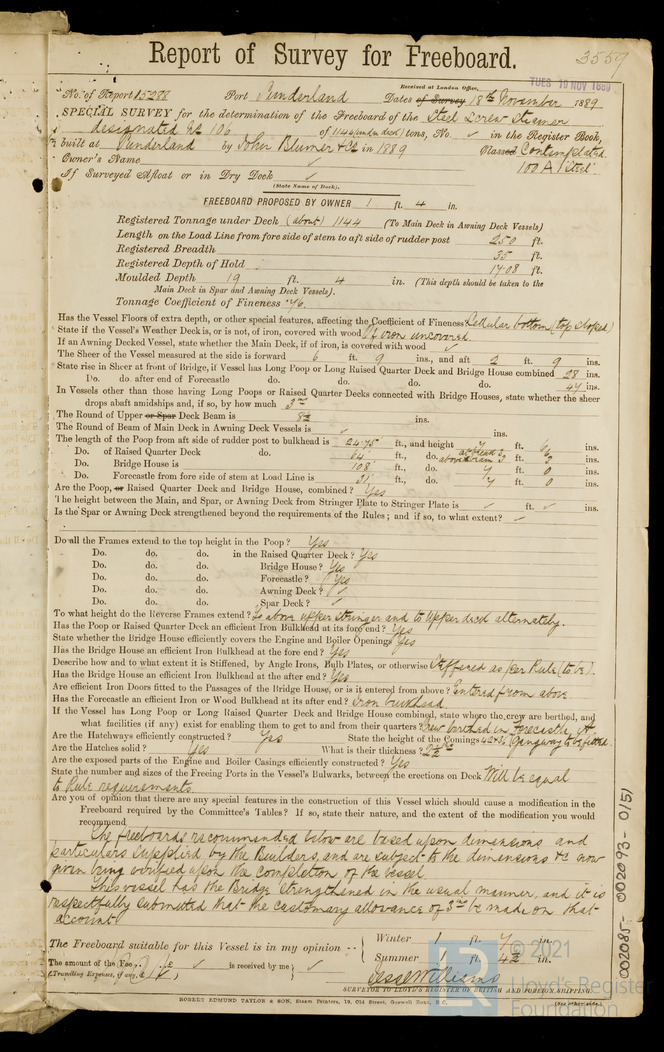 Report of Survey for Freeboard.
3559
Received at London Office,
TUES 19 NOV 1889
No. of Report 15288 Port Sunderland Date of Survey 18th November 1889
SPECIAL SURVEY for the determination of the Freeboard of the Steel Screw Steamer
designated No 106 of 1144 (und. deck) tons, No. ✓ in the Register Book,
built at Sunderland by John Blumer & Co in 1889 Classed Contemplated
Owner's Name 100 A1 "Steel"
If Surveyed Afloat or in Dry Dock ✓
(State Name of Dock).
FREEBOARD PROPOSED BY OWNER 1 ft. 4 in.
Registered Tonnage under Deck (about) 1144 (To Main Deck in Awning Deck Vessels)
Length on the Load Line from fore side of stem to aft side of rudder post 250 ft.
Registered Breadth 35 ft.
Registered Depth of Hold 17.08 ft.
Moulded Depth 19 ft. 4 in. (This depth should be taken to the
Main Deck in Spar and Awning Deck Vessels).
Tonnage Coefficient of Fineness .76
Has the Vessel Floors of extra depth, or other special features, affecting the Coefficient of Fineness Cellular bottom (top sloped)
State if the Vessel's Weather Deck is, or is not, of iron, covered with wood Of iron uncovered.
If an Awning Decked Vessel, state whether the Main Deck, if of iron, is covered with wood ✓
The Sheer of the Vessel measured at the side is forward 6 ft. 9 ins., and aft 2 ft. 9 ins.
State rise in Sheer at front of Bridge, if Vessel has Long Poop or Long Raised Quarter Deck and Bridge House combined 28 ins.
Do. do. after end of Forecastle do. do. do. do. 47 ins.
In Vessels other than those having Long Poops or Raised Quarter Decks connected with Bridge Houses, state whether the sheer
drops abaft amidships and, if so, by how much 3"
The Round of Upper or Spar Deck Beam is 8½ ins.
The Round of Beam of Main Deck in Awning Deck Vessels is ✓ ins.
The length of the Poop from aft side of rudder post to bulkhead is 24.75 ft., and height 7 ft. 6 ins.
Do. of Raised Quarter Deck do. 64 ft., do. 3 ft. ins.
Do. Bridge House is 108 ft., do. 7 ft. 0 ins.
Do. Forecastle from fore side of stem at Load Line is 31 ft., do. 7 ft. 0 ins.
Are the Poop, or Raised Quarter Deck and Bridge House, combined? Yes
The height between the Main, and Spar, or Awning Deck from Stringer Plate to Stringer Plate is ✓ ft. ✓ ins.
Is the Spar or Awning Deck strengthened beyond the requirements of the Rules; and if so, to what extent? ✓
Do all the Frames extend to the top height in the Poop? Yes
Do. do. do. in the Raised Quarter Deck? Yes
Do. do. do. Bridge House? Yes
Do. do. do. Forecastle? Yes
Do. do. do. Awning Deck? ✓
Do. do. do. Spar Deck? ✓
To what height do the Reverse Frames extend? To above upper stringer and to Upper deck alternately.
Has the Poop or Raised Quarter Deck an efficient Iron Bulkhead at its fore end? Yes
State whether the Bridge House efficiently covers the Engine and Boiler Openings Yes
Has the Bridge House an efficient Iron Bulkhead at the fore end? Yes
Describe how and to what extent it is Stiffened, by Angle Irons, Bulb Plates, or otherwise Stiffened as per Rule (to be).
Has the Bridge House an efficient Iron Bulkhead at the after end? Yes
Are efficient Iron Doors fitted to the Passages of the Bridge House, or is it entered from above? Entered from above
Has the Forecastle an efficient Iron or Wood Bulkhead at its after end? Iron bulkhead
If the Vessel has Long Poop or Long Raised Quarter Deck and Bridge House combined, state where the crew are berthed, and
what facilities (if any) exist for enabling them to get to and from their quarters? Crew berthed in Forecastle, A
Are the Hatchways efficiently constructed? Yes State the height of the Comings 42 & 3 Gangway to be fitted.
Are the Hatches solid? Yes What is their thickness? 2½ ins
Are the exposed parts of the Engine and Boiler Casings efficiently constructed? Yes
State the number and sizes of the Freeing Ports in the Vessel's Bulwarks, between the erections on Deck Will be equal
to Rule requirements.
Are you of opinion that there are any special features in the construction of this Vessel which should cause a modification in the
Freeboard required by the Committee's Tables? If so, state their nature, and the extent of the modification you would
recommend
The freeboards recommended below are based upon dimensions and
particulars supplied by the Builders, and are subject to the dimensions &c now
given being verified upon the completion of the vessel.
This vessel has the Bridge strengthened in the usual manner, and it is
respectfully submitted that the customary allowance of 3" be made on that
account.
The Freeboard suitable for this Vessel is in my opinion -- Winter 1 ft. 7 in.
Summer 1 ft. 4½ in.
The amount of the Fee ✓ is received by me ✓
(Travelling Expenses, if any, £ )
Jesse Williams
SURVEYOR TO LLOYD'S REGISTER OF BRITISH AND FOREIGN SHIPPING.
ROBERT EDMUND TAYLOR & SON, Steam Printers, 19, Old Street, Goswell Road, E.C.
(See other side.)
002085-002093-0151
© 2021
Lloyd's Register
Foundation